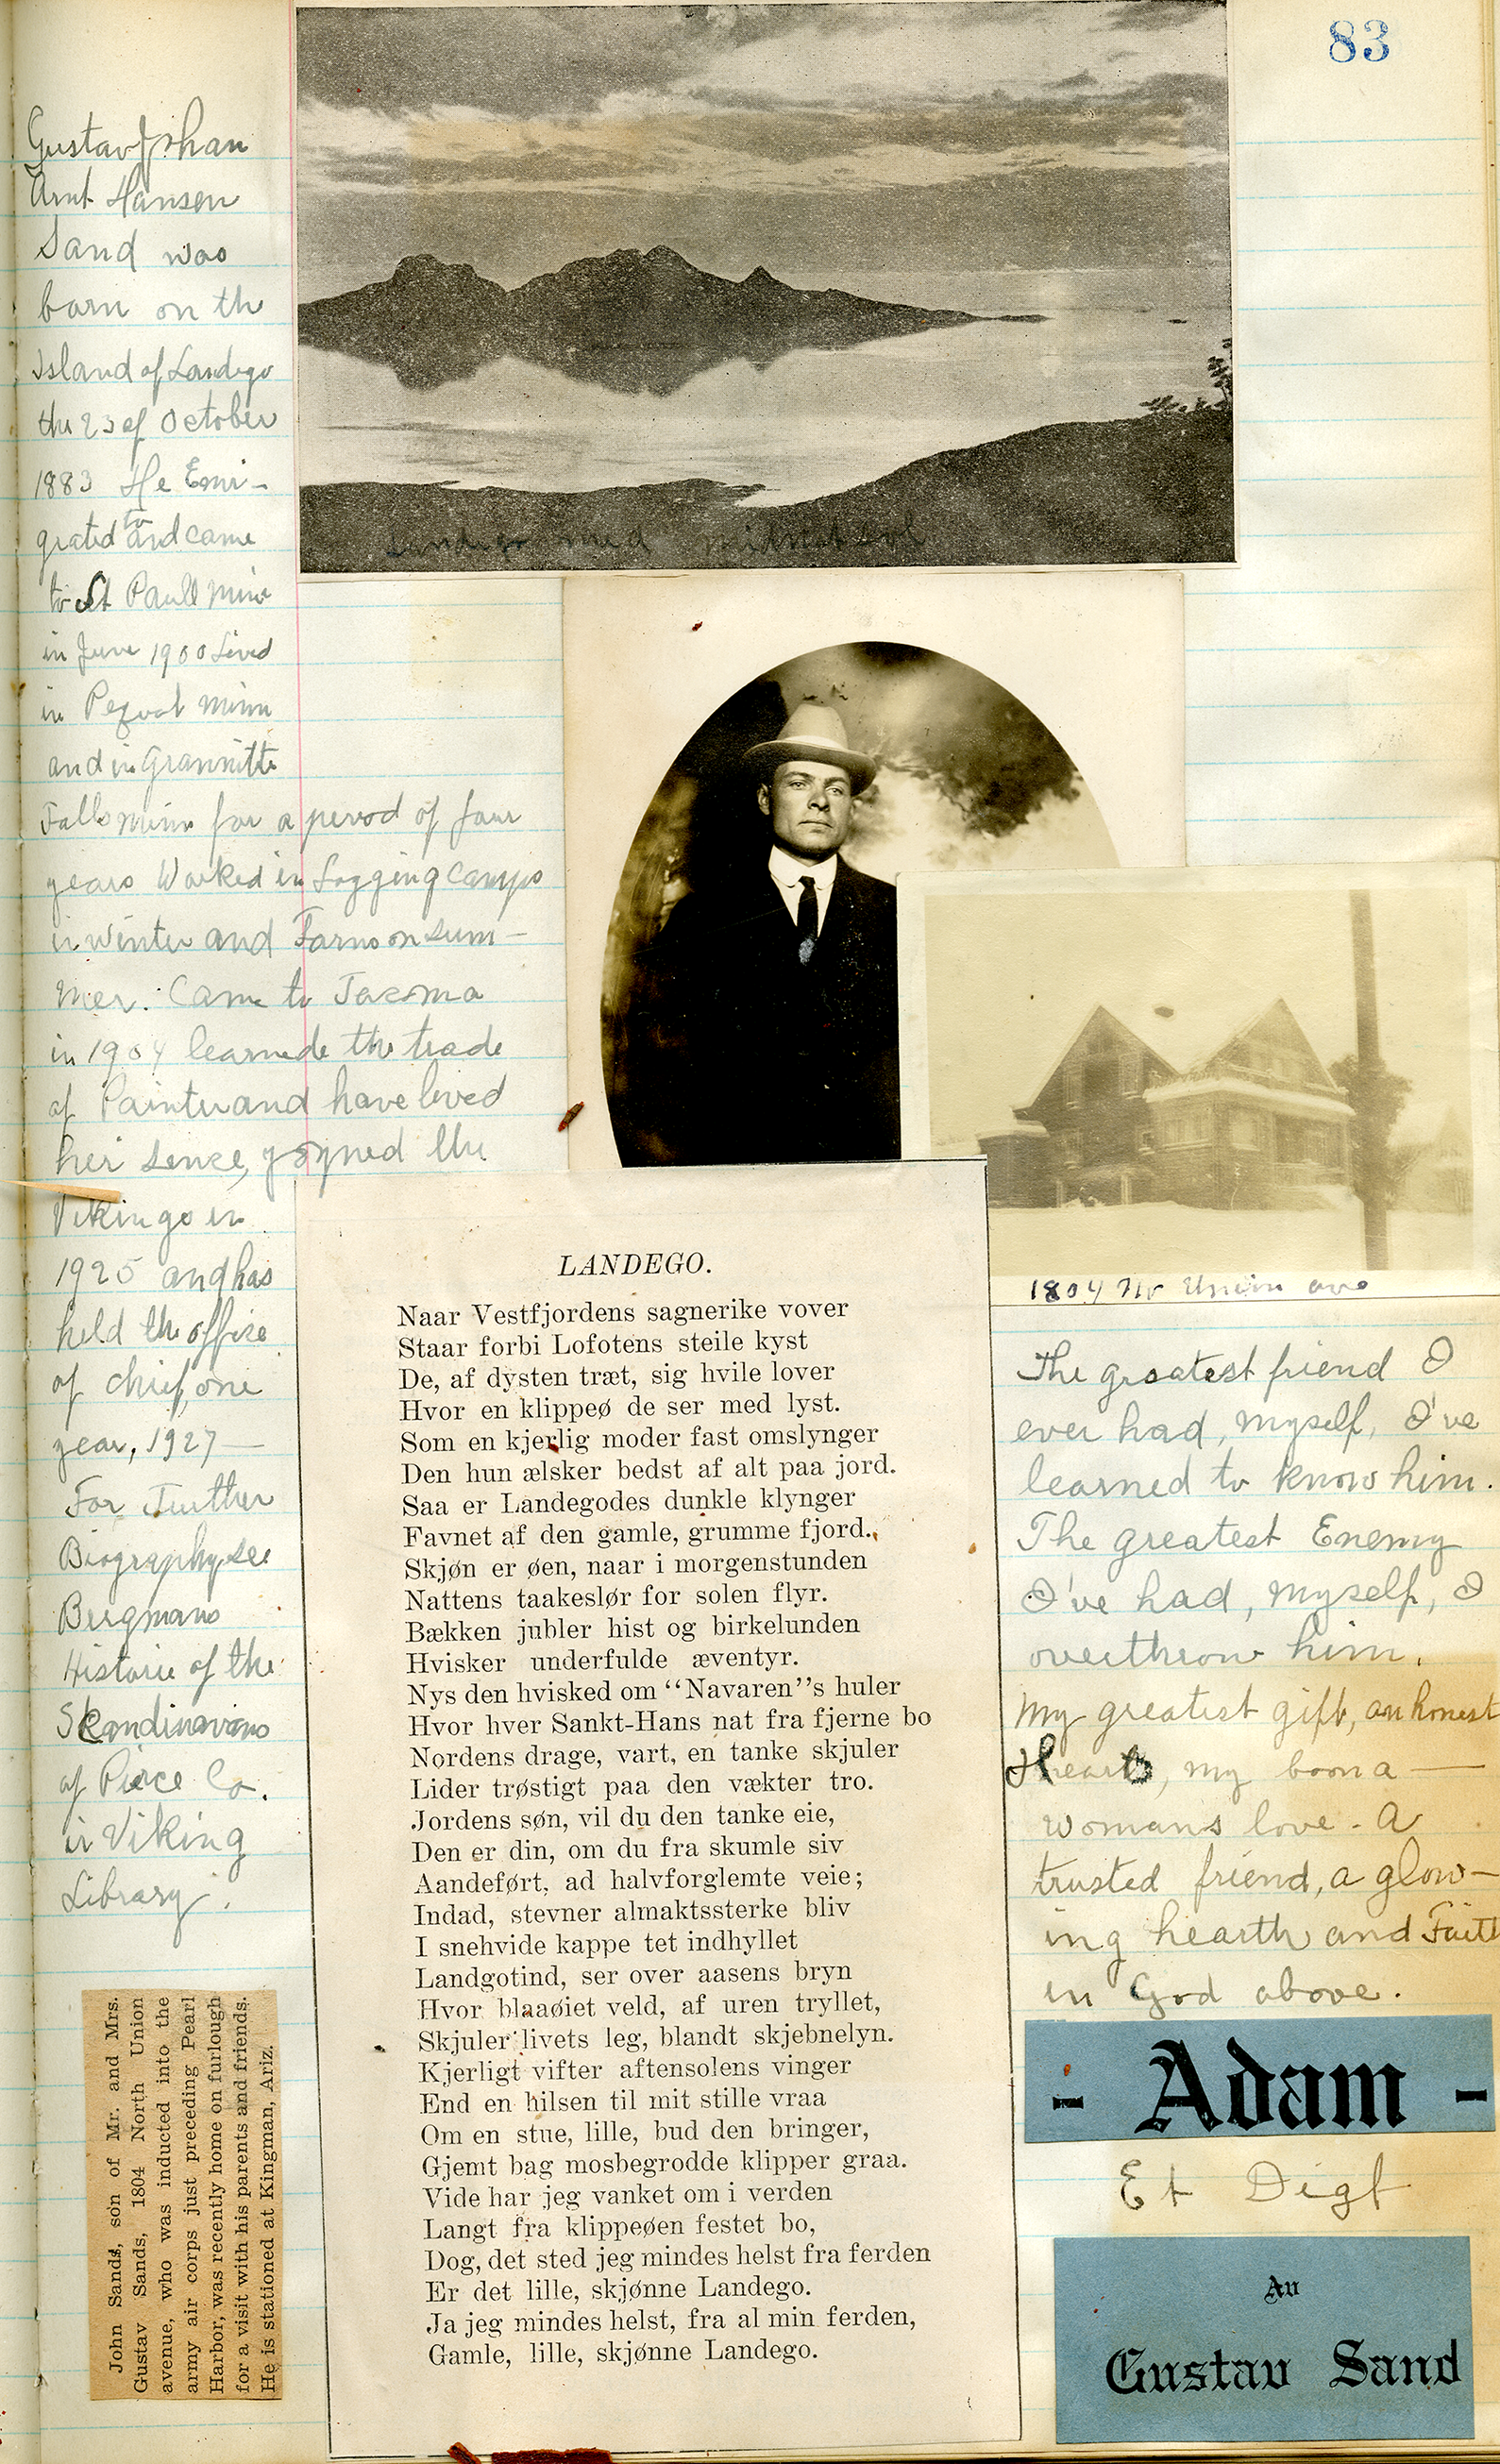 83
Gustav Johan
Arnt Hansen
Sand was
born on the
Island of Landego
the 23 of October
1883 He Emi-
grated to and came
to St Paull Minn
in June 1900 Lived
in Minn
and in Grannitte
Falls Minn for a period of four
years Worked in Logging Camps
in winter and Farms on sum-
mer. Came to Tacoma
in 1904 learnede the trade
of Painter and have lived
her sence, joyned the
Vikings in
1925 and has
held the office
of chief, one
year, 1927 —
For Further
Biography see
Bergmans
Historie of the
Skandinavians
of Pierce Co.
in Viking
Library.
Landego med midnatsol
1804 No Union ave
LANDEGO.
Naar Vestfjordens sagnerike vover
Staar forbi Lofotens steile kyst
De, af dysten træt, sig hvile lover
Hvor en klippeø de ser med lyst.
Som en kjerlig moder fast omslynger
Den hun ælsker bedst af alt paa jord.
Saa er Landegodes dunkle klynger
Favnet af den gamle, grumme fjord.
Skjøn er øen, naar i morgenstunden
Nattens taakeslør for solen flyr.
Bækken jubler hist og birkelunden
Hvisker underfulde æventyr.
Nys den hvisked om "Navaren"s huler
Hvor hver Sankt-Hans nat fra fjerne bo
Nordens drage, vart, en tanke skjuler
Lider trøstigt paa den vækter tro.
Jordens søn, vil du den tanke eie,
Den er din, om du fra skumle siv
Aandeført, ad halvforglemte veie;
Indad, stevner almaktssterke bliv
I snehvide kappe tet indhyllet
Landgotind, ser over aasens bryn
Hvor blaaøiet veld, af uren tryllet,
Skjuler livets leg, blandt skjebnelyn.
Kjerligt vifter aftensolens vinger
End en hilsen til mit stille vraa
Om en stue, lille, bud den bringer,
Gjemt bag mosbegrodde klipper graa.
Vide har jeg vanket om i verden
Langt fra klippeøen festet bo,
Dog, det sted jeg mindes helst fra ferden
Er det lille, skjønne Landego.
Ja jeg mindes helst, fra al min ferden,
Gamle, lille, skjønne Landego.
The greatest friend I
ever had, myself, I've
learned to know him.
The greatest Enemy
I've had, myself, I
overthrow him.
My greatest gift, an honest
Heart, my boon a —
womans love - A
trusted friend, a glow-
ing hearth and Faith
in God above.
- Adam -
Et Digt
Av
Gustav Sand
John Sands, son of Mr. and Mrs.
Gustav Sands, 1804 North Union
avenue, who was inducted into the
army air corps just preceding Pearl
Harbor, was recently home on furlough
for a visit with his parents and friends.
He is stationed at Kingman, Ariz.